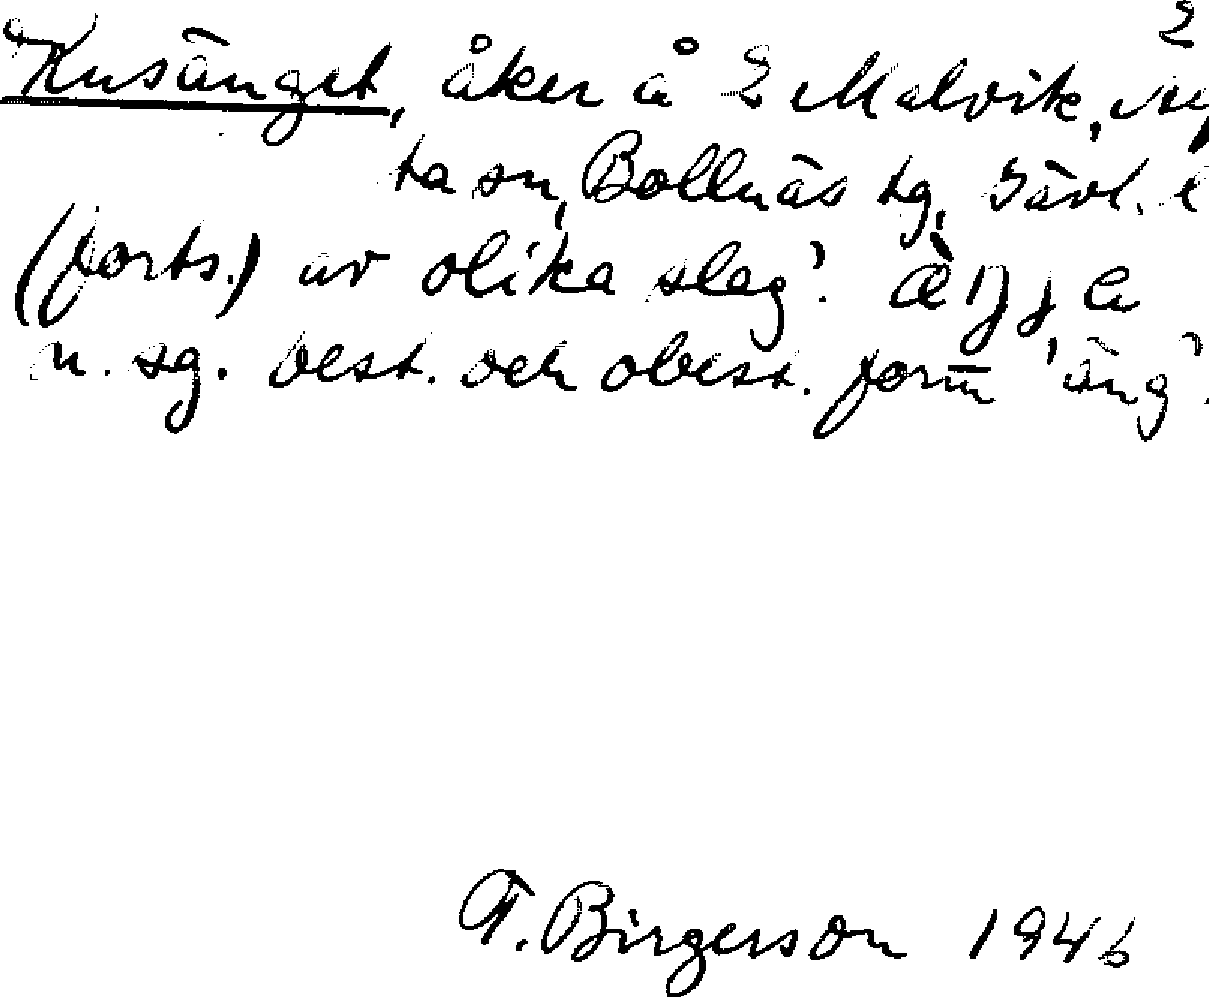 2
Kusänget, åker å 2 Malvik, Alf
ta sn, Bollnäs tg, Gävl. l
(forts.) av olika slag'. Æ̀ŋje
n. sg. best. och obest. form 'äng'.
T. Birgerson 1946